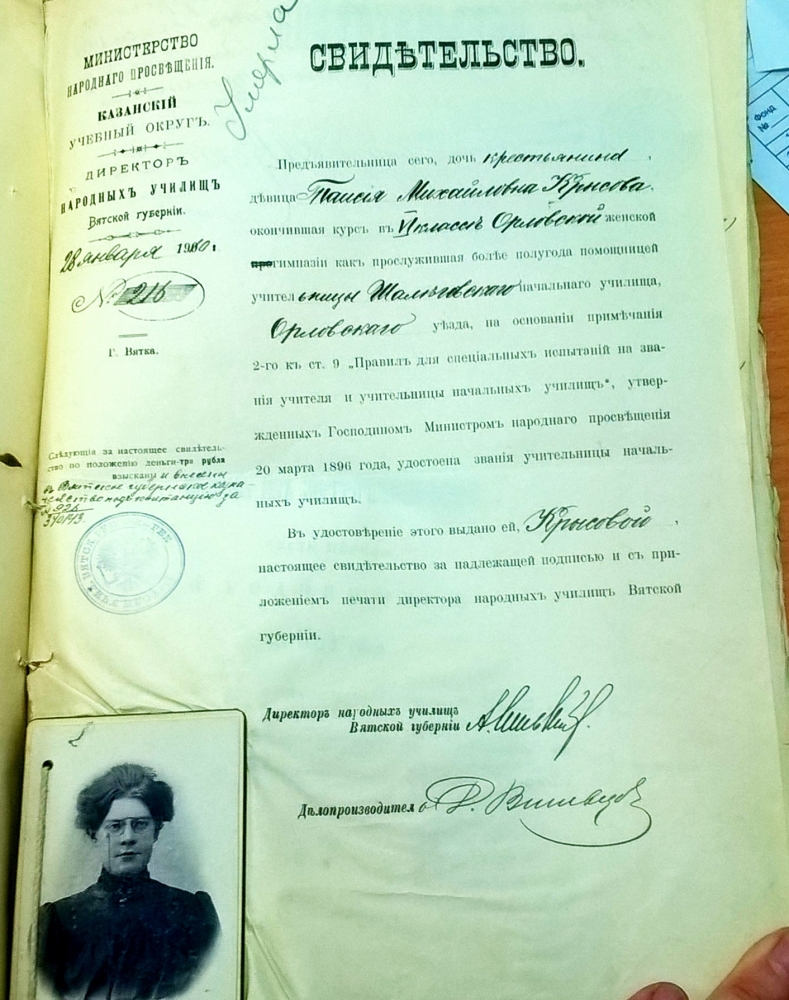 МИНИСТЕРСТВО
НАРОДНАГО ПРОСВѢЩЕНІЯ.
КАЗАНСКІЙ
УЧЕБНЫЙ ОКРУГЪ.
ДИРЕКТОРЪ
НАРОДНЫХЪ УЧИЛИЩЪ
Вятской губерніи.
28 января 1910 г.
№ 216
Г. Вятка.
Слѣдующія за настоящее свидѣтель-
ство по положенію деньги-три рубля
взысканы и внесены
въ Вятское губернское казна-
чейство под квитанцію за
СВИДѢТЕЛЬСТВО.
Умерла
Предъявительница сего, дочь крестьянина,
дѣвица Таисія Михайловна Крысова.
окончившая курсъ въ VI классѣ Орловской женской
прогимназіи какъ прослужившая болѣе полугода помощницей
учительницы Шалеговскаго начальнаго училища,
Орловскаго уѣзда, на основаніи примѣчанія
2-го къ ст. 9 „Правилъ для спеціальныхъ испытаній на зва-
нія учителя и учительницы начальныхъ училищъ“, утвер-
жденныхъ Господиномъ Министромъ народнаго просвѣщенія
20 марта 1896 года, удостоена званія учительницы началь-
ныхъ училищъ.
Въ удостовѣреніе этого выдано ей, Крысовой,
настоящее свидѣтельство за надлежащей подписью и съ при-
ложеніемъ печати директора народныхъ училищъ Вятской
губерніи.
Директоръ народныхъ училищъ
Вятской губерніи
Дѣлопроизводитель
фонд
№